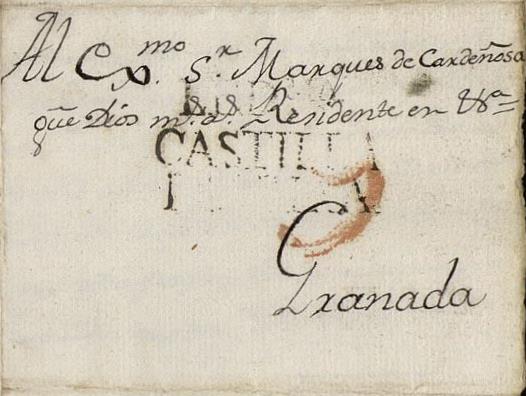 Al Exmo Sr Marques de Cardeñosa
que Dios ms as Residente en
CASTILLA
Granada